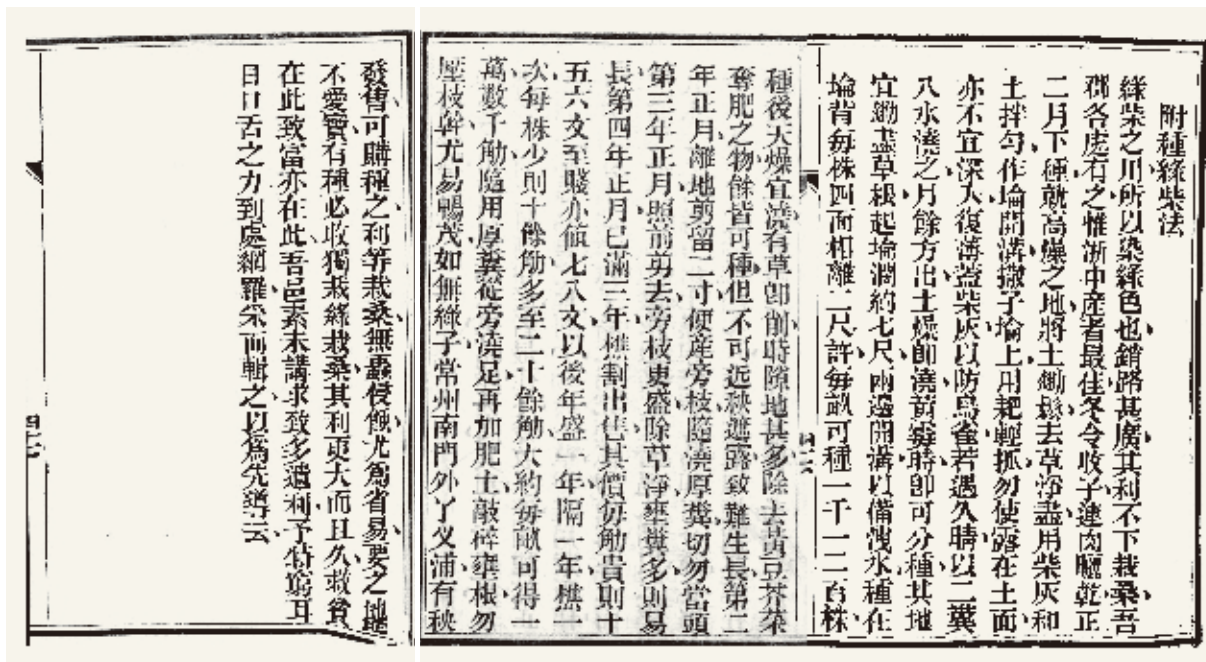 附種綠柴法
綠柴之用所以染綠色也銷路甚廣其利不下栽桑吾
鄰各處有之惟浙中産者最佳冬令收子連肉曬乾正
二月下種就高燥之地將土鋤鬆去草淨盡用柴灰和
土拌勻作埨開溝撒子埨上用耙輕抓勿使露在土面
亦不宜深入復薄蓋柴灰以防鳥雀若遇久晴以二糞
八水澆之月餘方出土燥卽澆黃霉時卽可分種其地
宜鋤盡草根起埨濶約七尺兩邊開溝以備洩水種在
埨背每株四面相離二尺許每畝可種一千一二百株
種後天燥宜澆有草卽削時隙地甚多除去黃豆芥菜
奪肥之物餘皆可種但不可近秧遮露致難生長第二
年正月離地剪留二寸便産旁枝隨澆厚糞切勿當頭
第三年正月照前剪去旁枝更盛除草淨壅糞多則易
長第四年正月已滿三年樵割出售其價每觔貴則十
五六文至賤亦值七八文以後年盛一年隔一年樵一
次每株少則十餘觔多至二十餘觔大約每畝可得一
萬數千觔隨用厚糞從旁澆足再加肥土敲碎壅根勿
壓枝幹尤易暢茂如無綠子常州南門外丫义浦有秧
發售可購種之利等栽桑無蟲侵蝕尤爲省易要之地
不愛寶有種必收獨栽綠栽桑其利更大而且久救貧
在此致富亦在此吾邑素未講求致多遺利予特竊耳
目口舌之力到處網羅采而輯之以爲先導云